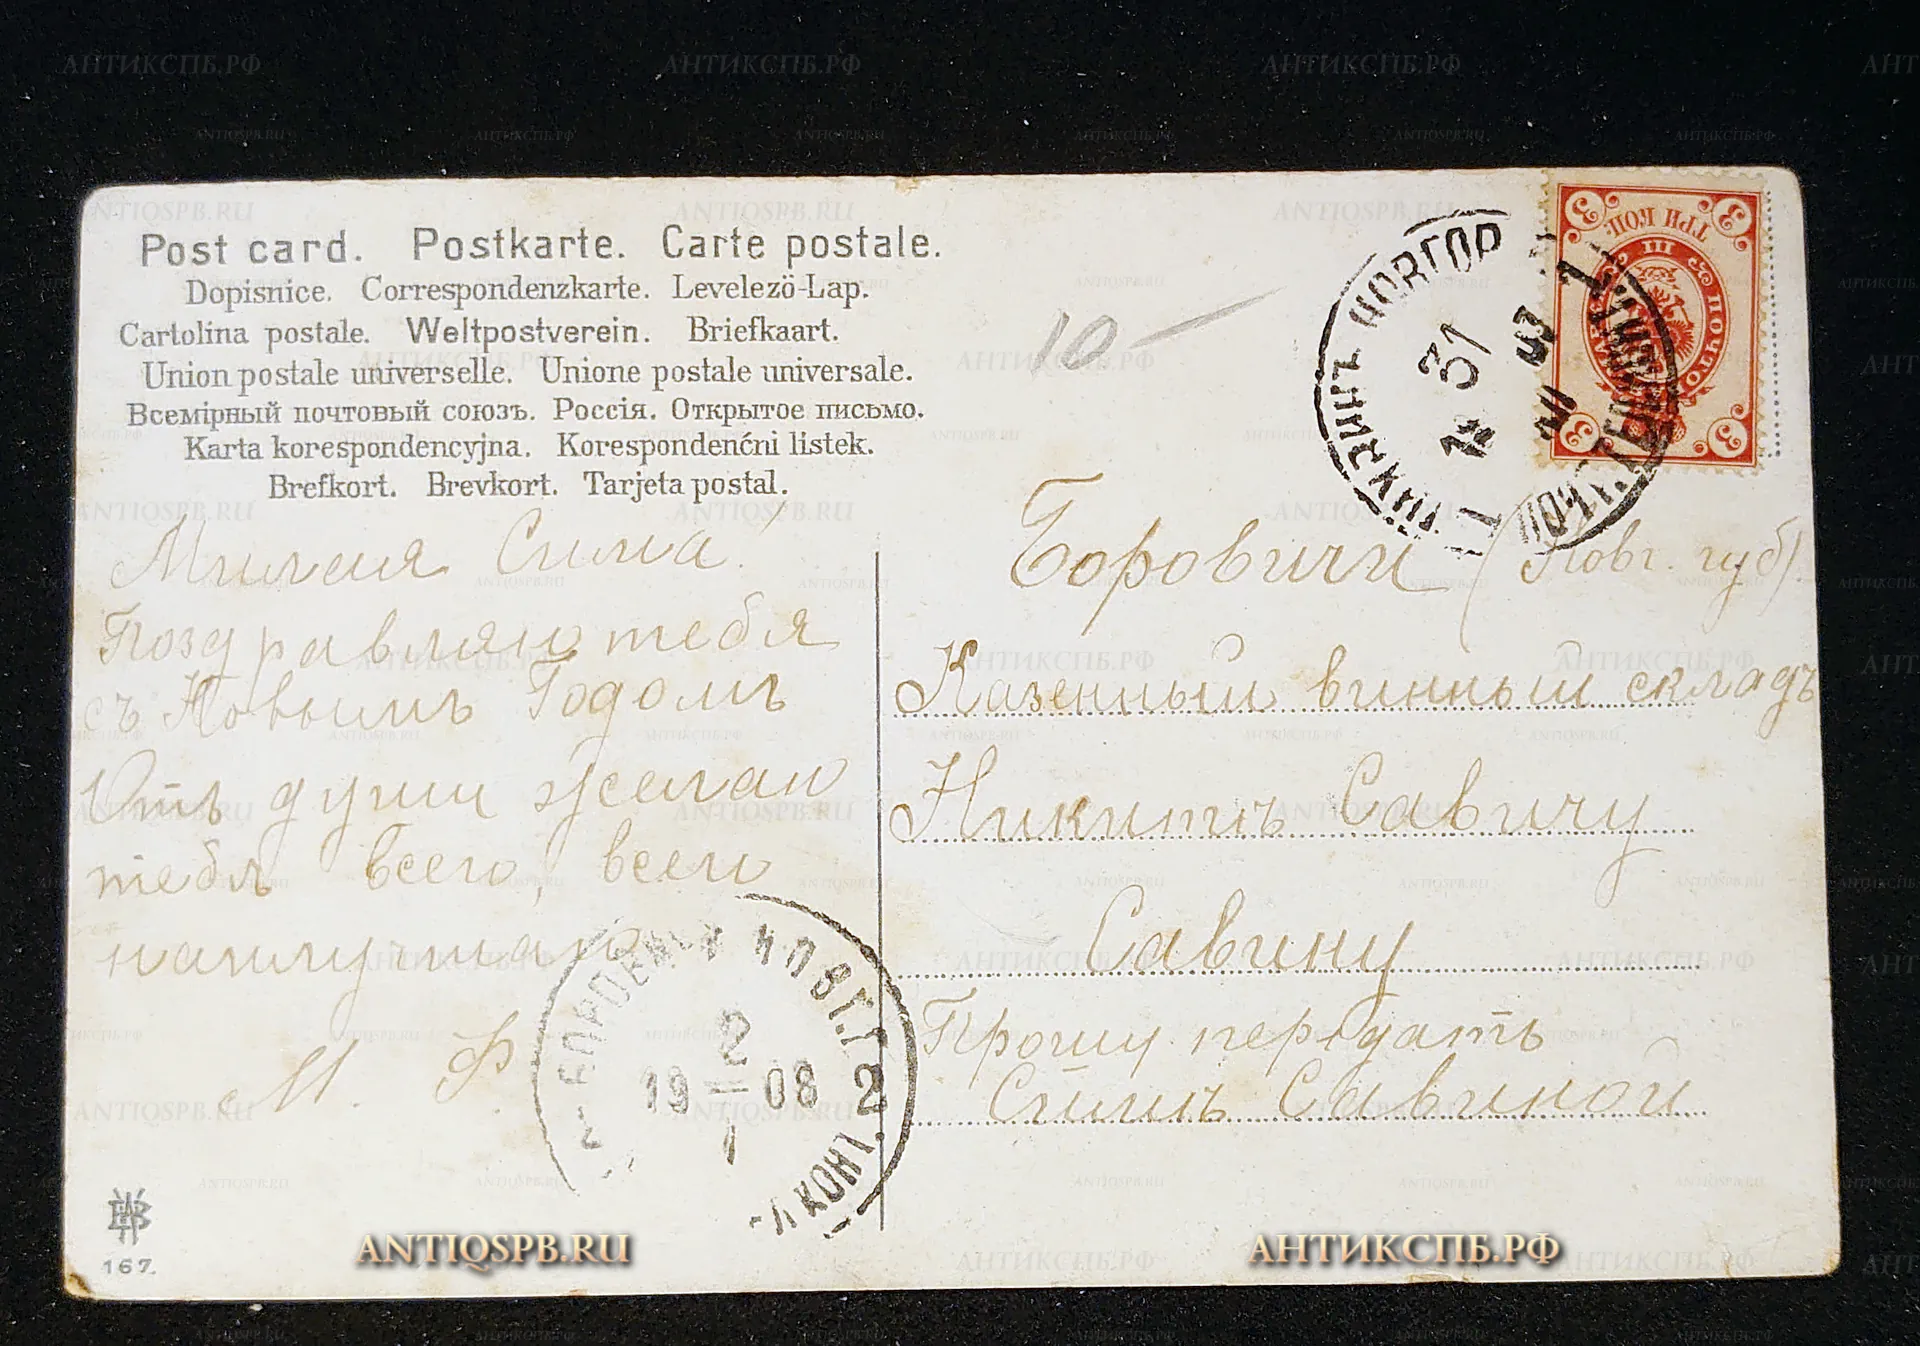 Post card. Postkarte. Carte postale.
Dopisnice. Correspondenzkarte. Levelezö-Lap.
Cartolina postale. Weltpostverein. Briefkaart.
Union postale universelle. Unione postale universale.
Всемірный почтовый союзъ. Россія. Открытое письмо.
Karta korespondencyjna. Korespondenćni listek.
Brefkort. Brevkort. Tarjeta postal.
10-
Милая Сима!
Поздравляю тебя
съ Новымъ Годомъ
Отъ души желаю
тебѣ всего, всего
наилучшаго
М. Ф.
Боровичи (Новг. губ).
Казенный винный складъ
Никитѣ Савичу
Савину
Прошу передать
Симѣ Савиной
ТРИ КОП.
III
3 3 3 3
31
12
07
1
БОРОВИЧИ НОВГ. Г.
2
19 08
1
2
167.
ANTIQSPB.RU
АНТИКСПБ.РФ